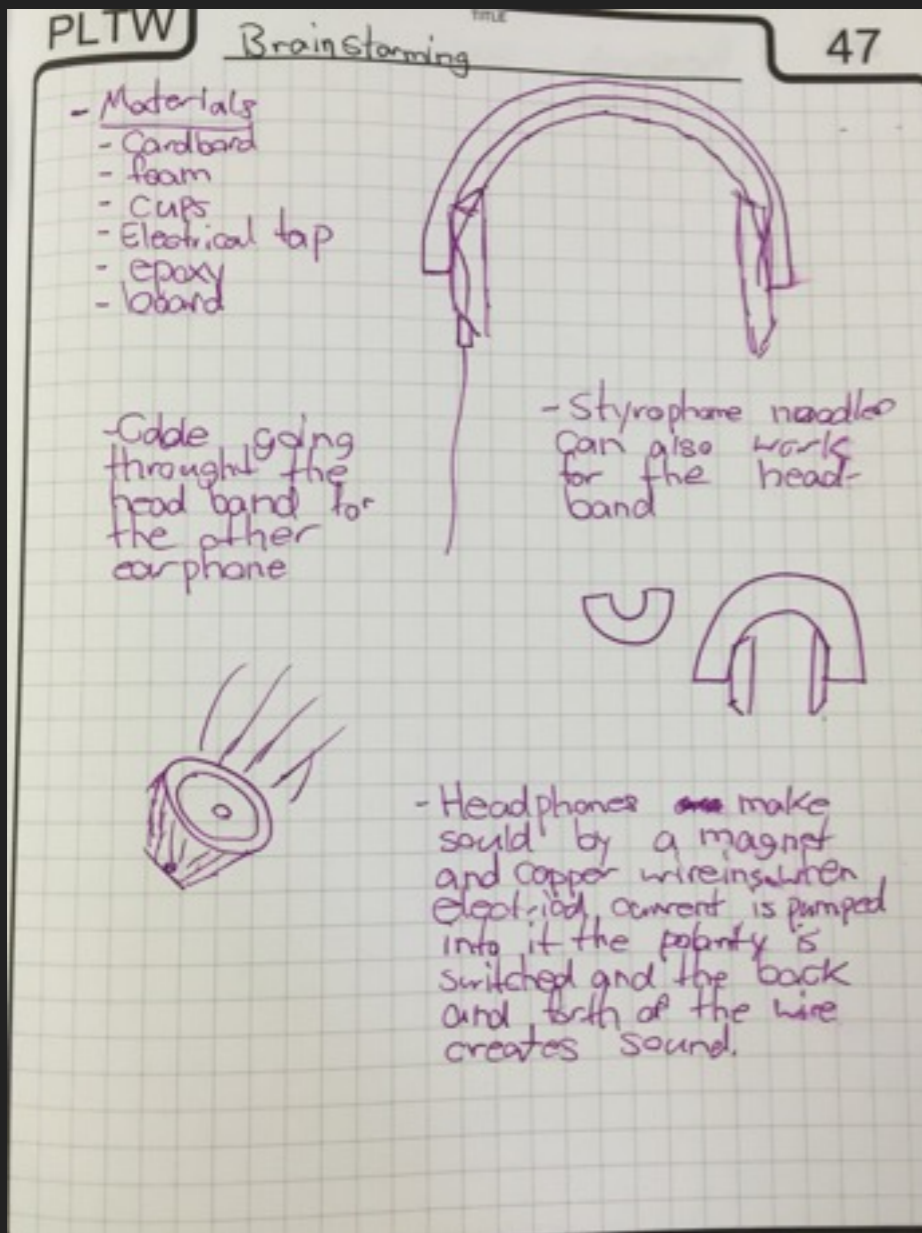 PLTW
TITLE
Brainstorming
47
- Materials
- Cardbard
- foam
- cups
- Electrical tap
- epoxy
- board
- Cable going
throught the
head band for
the other
earphone
- Styrophome noodles
can also work
for the head-
band
- Headphones make
sould by a magnet
and copper wire when
current is pumped
into it the polarity is
switched and the back
and forth of the wire
creates sound.